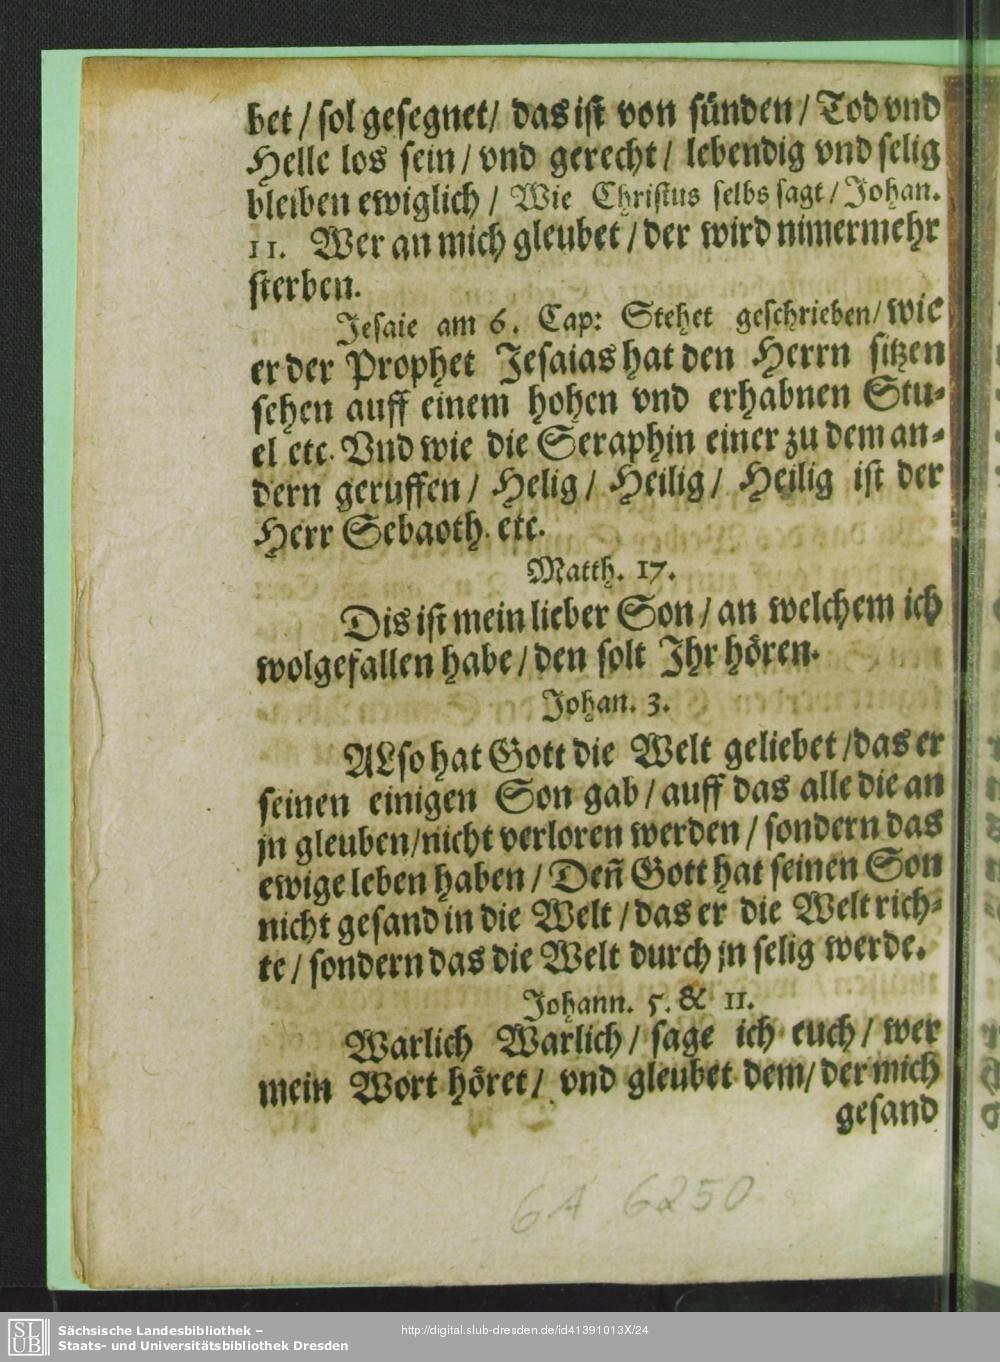 bet / sol gesegnet / das ist von sünden / Tod vnd
Helle los sein / vnd gerecht / lebendig vnd selig
bleiben ewiglich / Wie Christus selbs sagt / Johan.
11. Wer an mich gleubet / der wird nimermehr
sterben.
Jesaie am 6. Cap: Stehet geschrieben / wie
er der Prophet Jesaias hat den Herrn sitzen
sehen auff einem hohen vnd erhabnen Stu-
el etc. Vnd wie die Seraphin einer zu dem an-
dern geruffen / Helig / Heilig / Heilig ist der
Herr Sebaoth. etc.
Matth. 17.
Dis ist mein lieber Son / an welchem ich
wolgefallen habe / den solt Jhr hören.
Johan. 3.
ALso hat Gott die Welt geliebet / das er
seinen einigen Son gab / auff das alle die an
jn gleuben / nicht verloren werden / sondern das
ewige leben haben / Deñ Gott hat seinen Son
nicht gesand in die Welt / das er die Welt rich-
te / sondern das die Welt durch jn selig werde.
Johann. 5. & 11.
Warlich Warlich / sage ich euch / wer
mein Wort höret / vnd gleubet dem / der mich
gesand
6A 6250
SLUB
Sächsische Landesbibliothek –
Staats- und Universitätsbibliothek Dresden
http://digital.slub-dresden.de/id41391013X/24